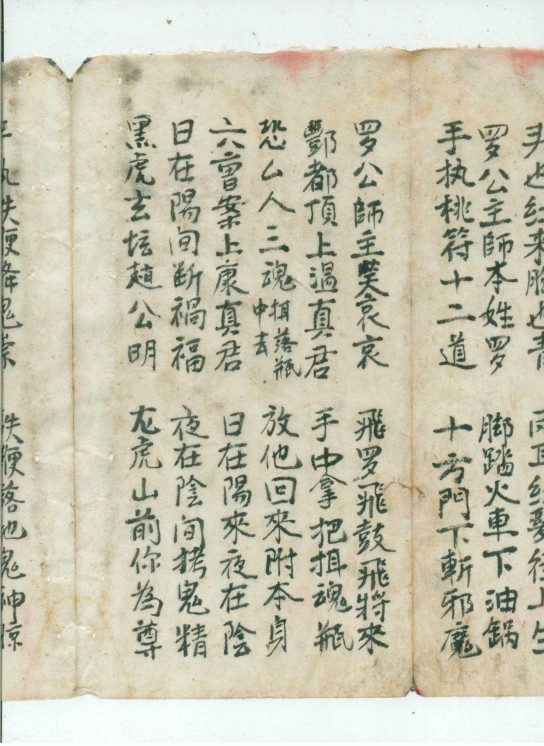 头也红来脸也青
罗公主師本姓罗 脚踏火車下油鍋
手执桃符十二道 十字門下斬邪魔
罗公師主笑哀哀 飛罗飛鼓飛將來
酆都頂上温真君 手中拿把揖魂瓶
恐厶人三魂揖落瓶中去 放他回來附本身
六曹案上康真君 日在陽來夜在陰
日在陽间断禍福 夜在陰间拷鬼精
黑虎玄坛趙公明 尨虎山前你為尊
手执铁鞭降鬼祟 铁鞭落地鬼神惊